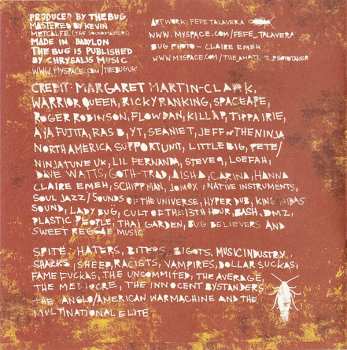 PRODUCED BY THE BUG
MASTERED BY KEVIN
METCALFE (THE SOUNDMASTERS)
MADE IN BABYLON
THE BUG IS PUBLISHED
BY CHRYSALIS MUSIC
WWW.MYSPACE.COM/THEBUGUK
ARTWORK, FEFE TALAVERA
WWW.MYSPACE.COM/FEFE_TALAVERA
BUG PHOTO - CLAIRE EMEH
CREDIT: MARGARET MARTIN-CLARK,
WARRIOR QUEEN, RICKY RANKING, SPACEAPE,
ROGER ROBINSON, FLOWDAN, KILLA P, TIPPA IRIE,
AYA FUTITA, RAS B, YT, SEANIE T, JEFF @ THE NINJA
NORTH AMERICA SUPPORT UNIT, LITTLE BIG, PETE/
NINJATUNE UK, LIL FERNANDA, STEVE 9, LOEFAH,
DAVE WATTS, GOTH-TRAD, AISHA, CARINA, HANNA
CLAIRE EMEH, SCHIPPMAN, JOMOX, NATIVE INSTRUMENTS,
SOUL JAZZ/SOUNDS OF THE UNIVERSE, HYPERDUB, KING MIDAS
SOUND, LADYBUG, CULT OF THE 13TH HOUR, BASH, DMZ,
PLASTIC PEOPLE, THAI GARDEN, BUG BELIEVERS AND
SWEET REGGAE MUSIC
SPITE: HATERS, BITERS, BIGOTS, MUSIC INDUSTRY
SHARKS, SHEEP, RACISTS, VAMPIRES, DOLLAR SUCKAS,
FAME FUCKAS, THE UNCOMMITED, THE AVERAGE,
THE MEDIOCRE, THE INNOCENT BYSTANDERS
THE ANGLO/AMERICAN WARMACHINE AND THE
MULTINATIONAL ELITE